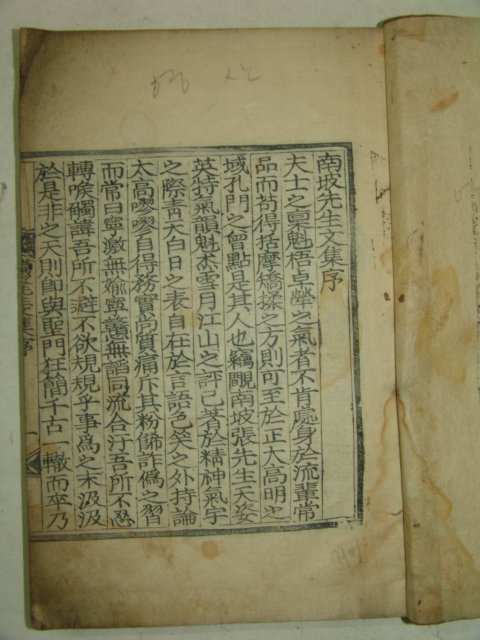 南坡先生文集序
夫士之禀魁梧卓犖之氣者不肯處身於流輩常
品而苟得括摩矯揉之方則可至於正大高明之
域孔門之曾點是其人也竊覵南坡張先生天姿
英特氣韻魁杰雪月江山之評已著於精神氣宇
之際靑天白日之表自在於言語色笑之外持論
太高嘐嘐自得務實尚質痛斥其粉餙詐僞之習
而常曰寧激無媮寧戇無謟同流合汙吾所不忍
轉喉觸諱吾所不避不欲規規乎事爲之末汲汲
於是非之天則卽與聖門狂簡千古一轍而卒乃
集序
一